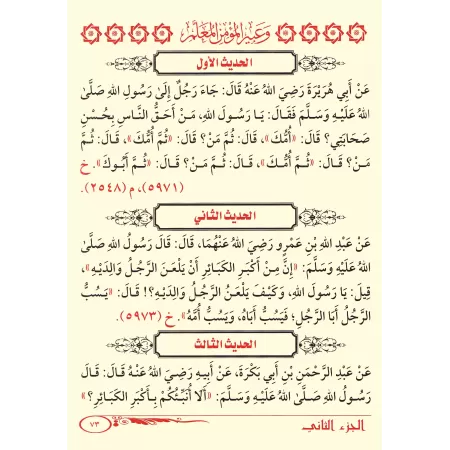 وعيد المؤمن المعلم
الحديث الأول
عَنْ أَبِي هُرَيْرَةَ رَضِيَ اللهُ عَنْهُ قَالَ: جَاءَ رَجُلٌ إِلَى رَسُولِ اللهِ صَلَّى
اللهُ عَلَيْهِ وَسَلَّمَ فَقَالَ: يَا رَسُولَ اللهِ، مَنْ أَحَقُّ النَّاسِ بِحُسْنِ
صَحَابَتِي؟ قَالَ: «أُمُّكَ»، قَالَ: ثُمَّ مَنْ؟ قَالَ: «ثُمَّ أُمُّكَ»، قَالَ: ثُمَّ
مَنْ؟ قَالَ: «ثُمَّ أُمُّكَ»، قَالَ: ثُمَّ مَنْ؟ قَالَ: «ثُمَّ أَبُوكَ». خ
(٥٩٧١)، م (٢٥٤٨).
الحديث الثاني
عَنْ عَبْدِ اللهِ بْنِ عَمْرٍو رَضِيَ اللهُ عَنْهُمَا، قَالَ: قَالَ رَسُولُ اللهِ صَلَّى
اللهُ عَلَيْهِ وَسَلَّمَ: «إِنَّ مِنْ أَكْبَرِ الْكَبَائِرِ أَنْ يَلْعَنَ الرَّجُلُ وَالِدَيْهِ»،
قِيلَ: يَا رَسُولَ اللهِ، وَكَيْفَ يَلْعَنُ الرَّجُلُ وَالِدَيْهِ؟! قَالَ: «يَسُبُّ
الرَّجُلُ أَبَا الرَّجُلِ؛ فَيَسُبُّ أَبَاهُ، وَيَسُبُّ أُمَّهُ». خ (٥٩٧٣).
الحديث الثالث
عَنْ عَبْدِ الرَّحْمَنِ بْنِ أَبِي بَكْرَةَ، عَنْ أَبِيهِ رَضِيَ اللهُ عَنْهُ قَالَ: قَالَ
رَسُولُ اللهِ صَلَّى اللهُ عَلَيْهِ وَسَلَّمَ: «أَلَا أُنَبِّئُكُمْ بِأَكْبَرِ الْكَبَائِرِ؟»
الجزء الثاني
٧٣